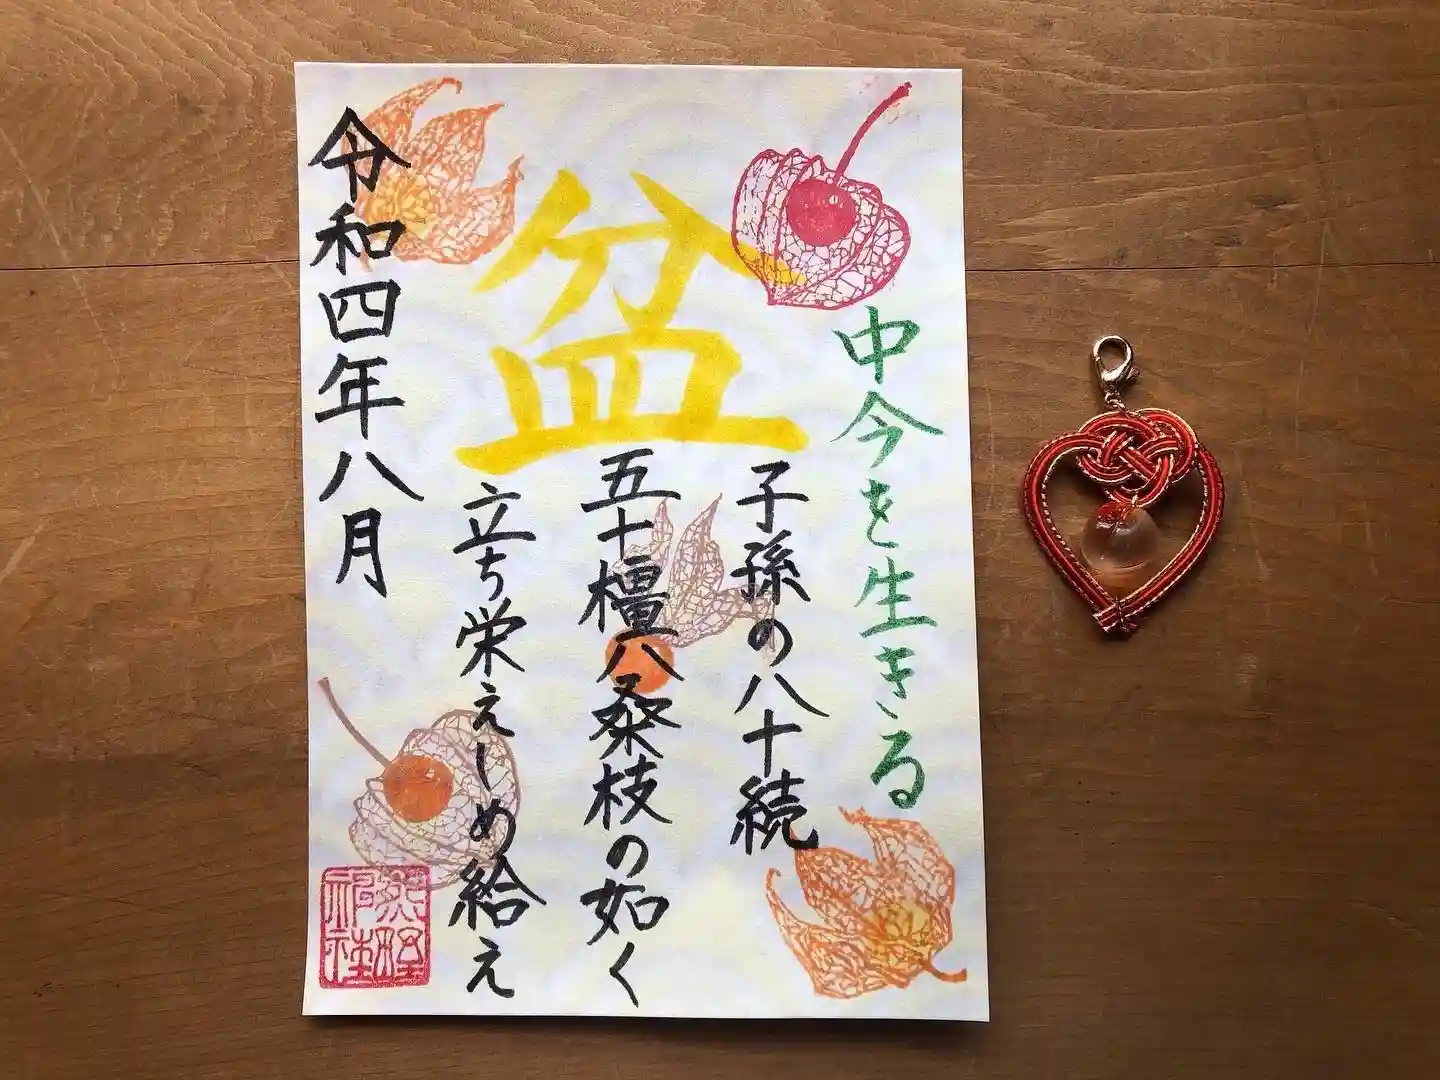 中今を生きる
盆
子孫の八十続
五十橿八桑枝の如く
立ち栄えしめ給え
令和四年八月
熊野神社